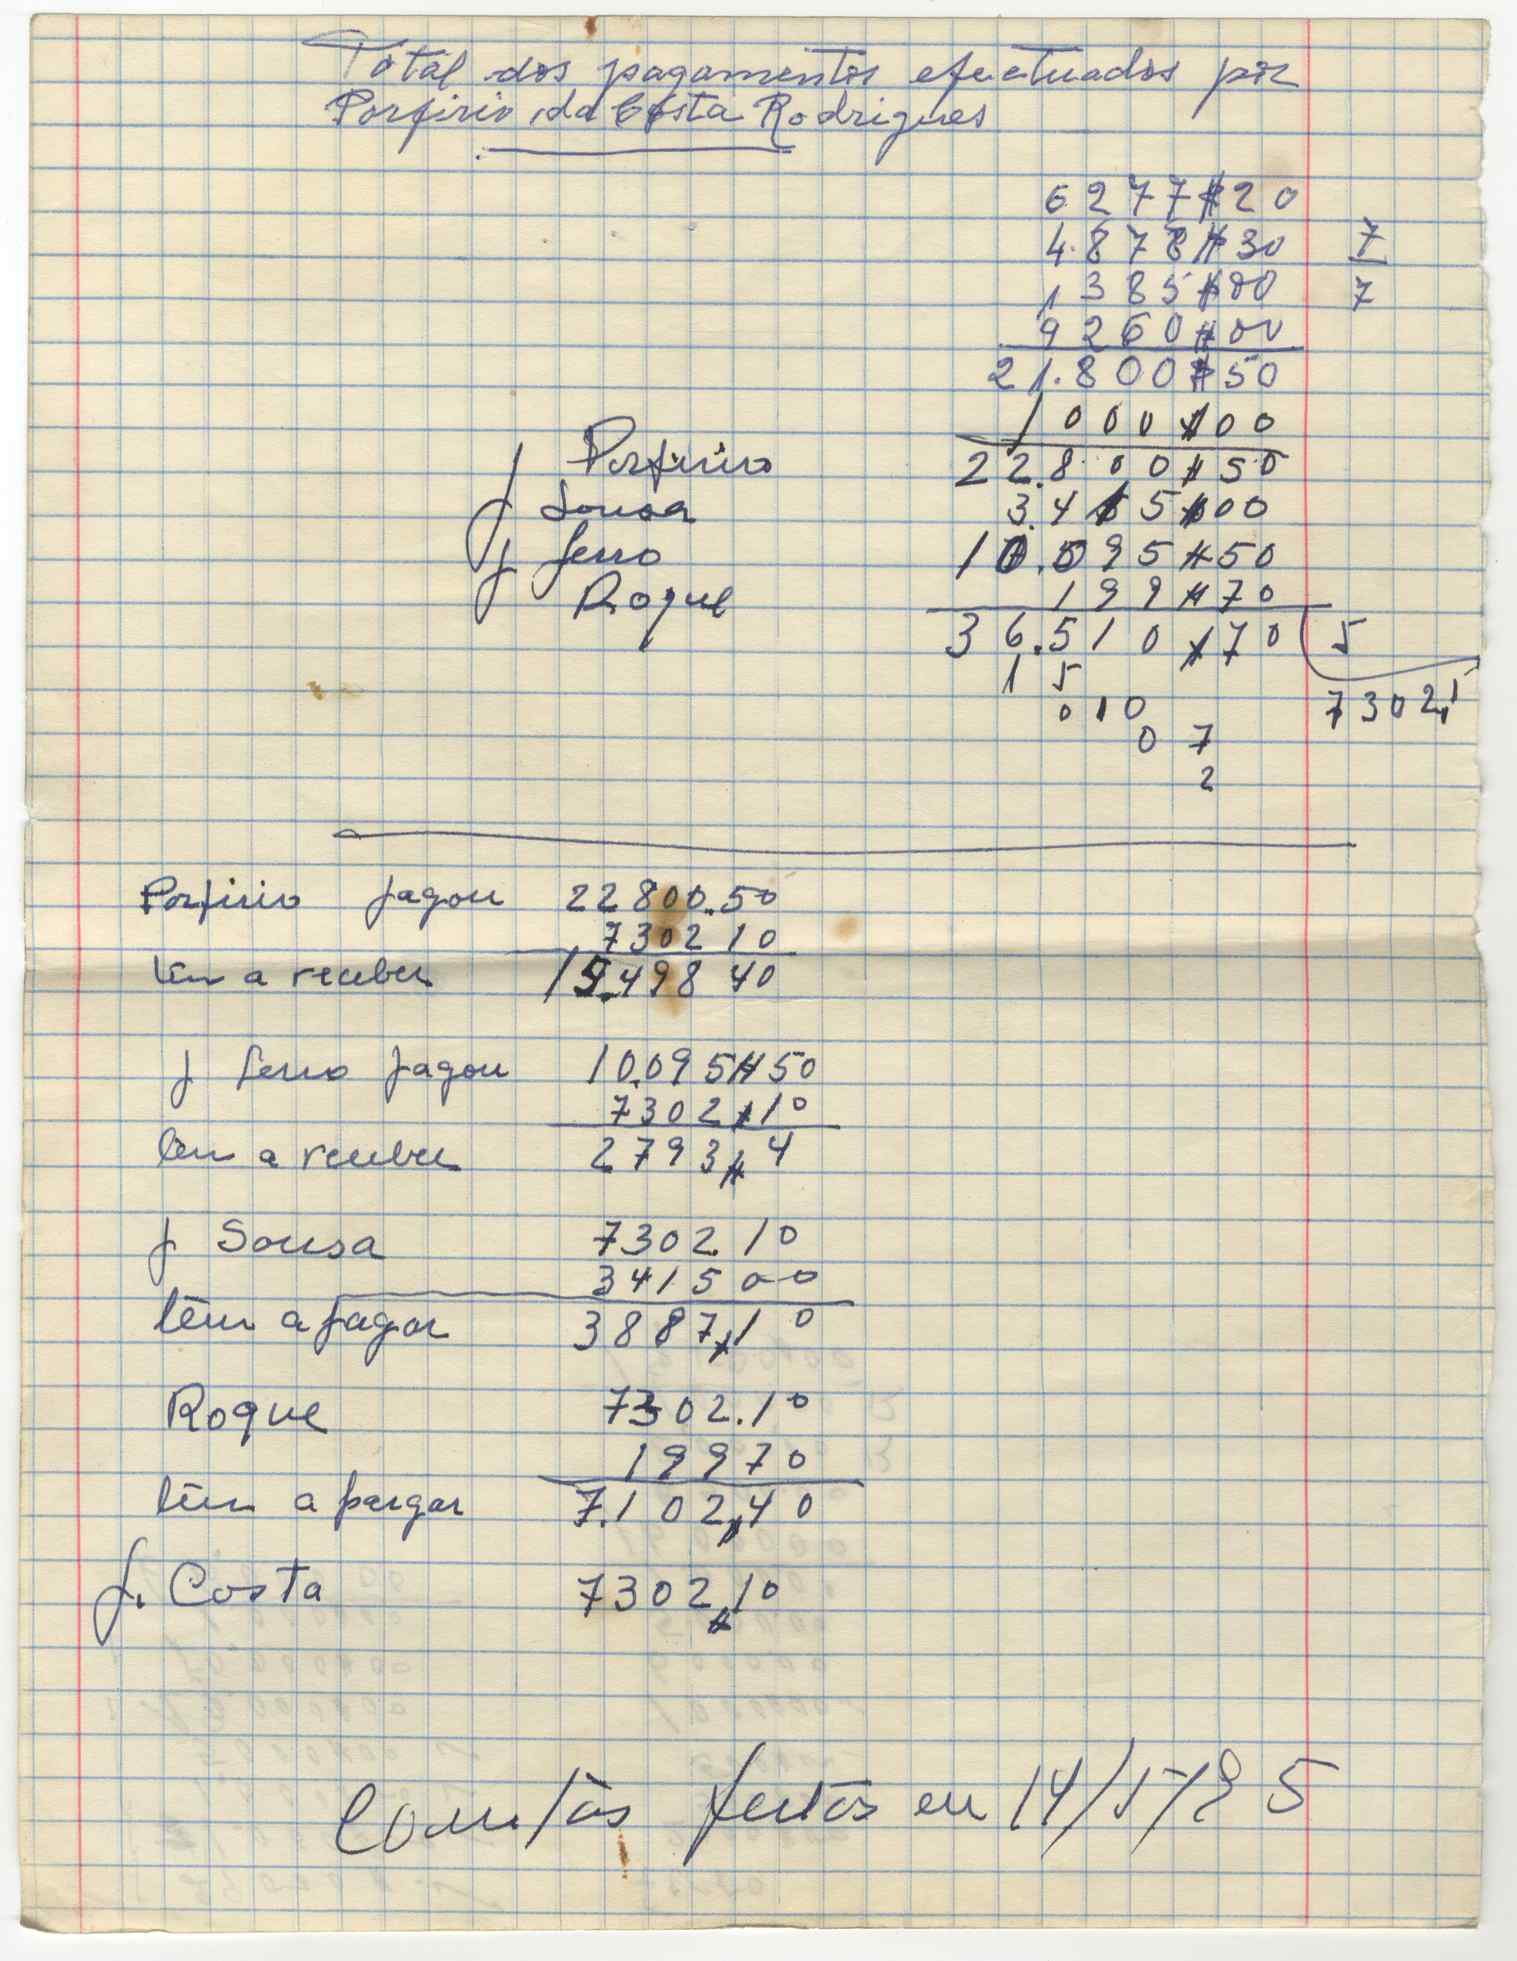 Total dos pagamentos efectuados por
Porfirio da Costa Rodrigues
6277$20
4.878$30 7
1385$00 7
9260$00
21.800$50
1000$00
Porfirio 22.800$50
J Sousa 3.415$00
J Serro 10.095$50
Roque 199$70
36.510$70 5
15 7302,1
010
07
2
Porfirio pagou 22800.50
7302 10
têm a receber 15.498 40
J Serro pagou 10.095$50
7302$10
têm a receber 2793$4
J Sousa 7302.10
3415 00
têm a pagar 3887$10
Roque 7302.10
199 70
têm a pargar 7.102$40
J. Costa 7302$10
Contas feitas em 14/5/85